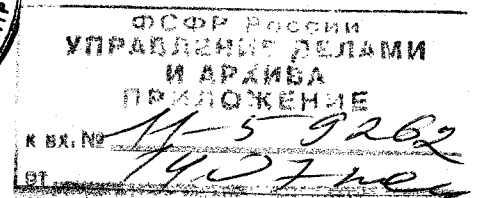 ФСФР России
УПРАВЛЕНИЕ ДЕЛАМИ
И АРХИВА
ПРИЛОЖЕНИЕ
К ВХ. № 11-59262
ОТ